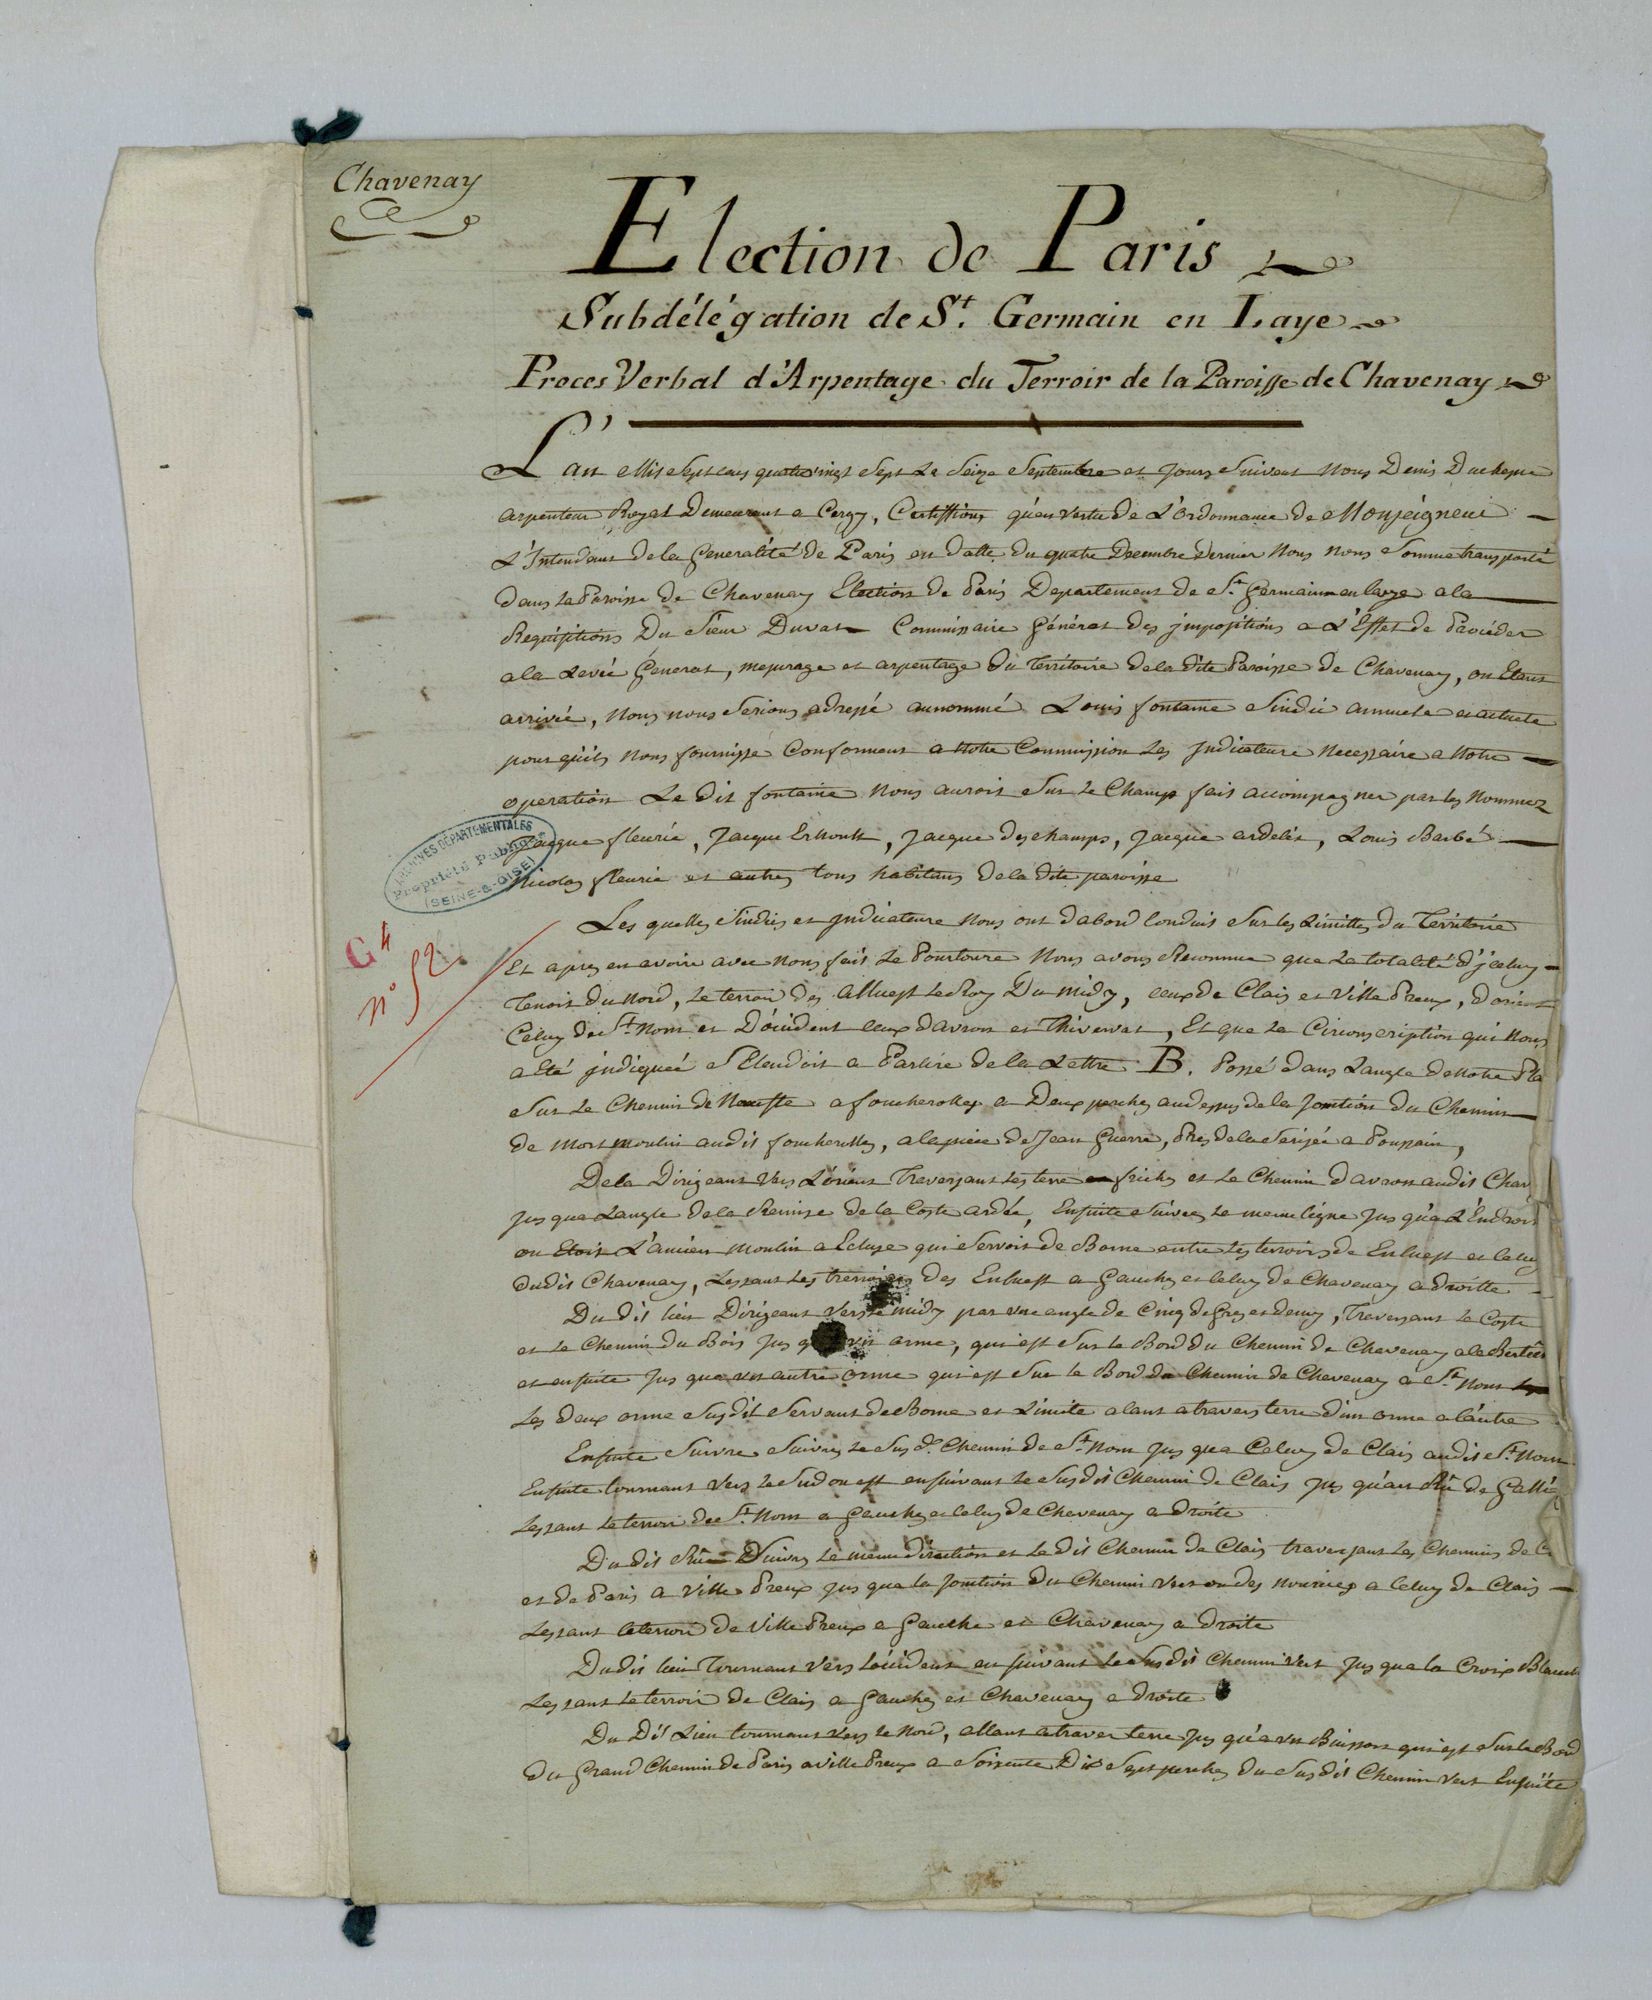 Chavenay
Election de Paris
Subdélégation de St. Germain en Laye
Proces Verbal d'Arpentage du Terroir de la Paroisse de Chavenay
L'an Mil Sept cens quatrevingt Sept Le Seize Septembre et jours Suivent Nous Denis Duchesne
arpenteur Royal Demeurant a Cergy, Certiffions qu'en vertu de L'Ordonnance de Monseigneur
L'Intendant de la Generalité de Paris en datte du quatre Decembre dernier Nous nous Somme transporté
dans la Paroisse de Chavenay Election de Paris Departement de St. Germain en laye a la
Requisitions Du Sieur Duval Commissaire Général des impositions a L'Effet de Proceder
a la Levée General, mesurage et arpentage du Territoire de la dite Paroisse de Chavenay, ou Etant
arrivée, Nous nous Serions adressé au nommé Louis fontaine Sindic annuele et actuele
pour qu'ils Nous fournisse Conforment a Notre Commission Les Indicateure Necessaire a Notre
operation Le dit fontaine Nous auroit Sur le Champ fait accompagner par les Nommez
Jacque fleurie, Jacque Ernoult, Jacque deschamps, Jacque ardelée, Louis Barbé
Nicolas fleurie et autres tous habitans de la dite paroisse
ARCHIVES DÉPARTEMENTALES
Propriété Publique
(SEINE-&-OISE)
G 4
n° 52
Les quelles Sindics et Indicateure Nous ont d'abord Conduit Sur les Limittes du Territoire
Et apres en avoire avec Nous fait Le Pourtoure Nous avons Reconnue que La totalité d'jceluy
Tenoit du Nord, le terroir des alluest Le Roy Du midy, ceux de Clais et Ville Preux, d'orient
Celuy de St. Nom et D'ócident ceux davron et Thiverval, Et que La Circonscription qui Nous
a Eté jndiqueé S'Etendoit a Partire de la Lettre B. Possé dans L'angle de Notre Pla
Sur Le Chemin de a foucherolles a Deux perches au dessus de la Jontion du Chemin
de Mort moulin audit foucherolles, a la piece de Jean Guerre, Pres de la a Poussain,
De la Dirigeant Vers L'òrient Traversant Les terre en friches et Le Chemin davron audit Chav
Jus qua Langle de la Remise de la Coste ardée, Ensuite Suivre Le meme ligne Jus qu'a L'Endroit
ou Etoit L'ancien moulin a Ecluse qui Servoit de Borne entre Les terroirs de Enluest et Celuy
dudit Chavenay, Lessant Les terroires des Enluest a Gauche et Celuy de Chavenay a droitte
Du dit lieu Dirigeant Vers Le midy par une angle de Cinq degres et demy, Treversant La Coste
et Le Chemin du Bois Jus orme, qui est Sur Le Bord du Chemin de Chavenay a la
et ensuite Jus qua un autre orme qui est Sur le Bord du Chemin de Chavenay a St. Nom
Les deux orme Susdit Servant de Borne et Limite alant a travers terre d'un orme a l'autre
Ensuite Suivre Suivre Le Susd. Chemin de St. Nom Jus qua Celuy de Clais audit St. Nom
Ensuite tournant Vers Le Sudouest en suivant Le Susdit Chemin de Clais Jus qu'au Rû de Gallie
Lessant Le terroir de St. Nom a Gauche et Celuy de Chavenay a droite
Du dit Rû Suivre Le meme direction et Le dit Chemin de Clais traversant Les Chemins de
et de Paris a Ville Preux Jus que la Jontion du Chemin Vert ou des Nourices a Celuy de Clais
Lessant le terroir de Ville Preux a Gauche et Chavenay a droite
Dudit lieu Tournant Vers L'òcident en suivant Le Susdit Chemin Vert Jus qua la Croix Blanche
Lessant Le terroir de Clais a Gauche et Chavenay a droite
Du Dit Lieu tournant Vers Le Nord, allant a traver terre Jus qu'a un Buisson qui est Sur le Bord
du Grand Chemin de Paris a Ville Preux a Soixente Dix Sept perches du Susdit Chemin Vert Ensuite